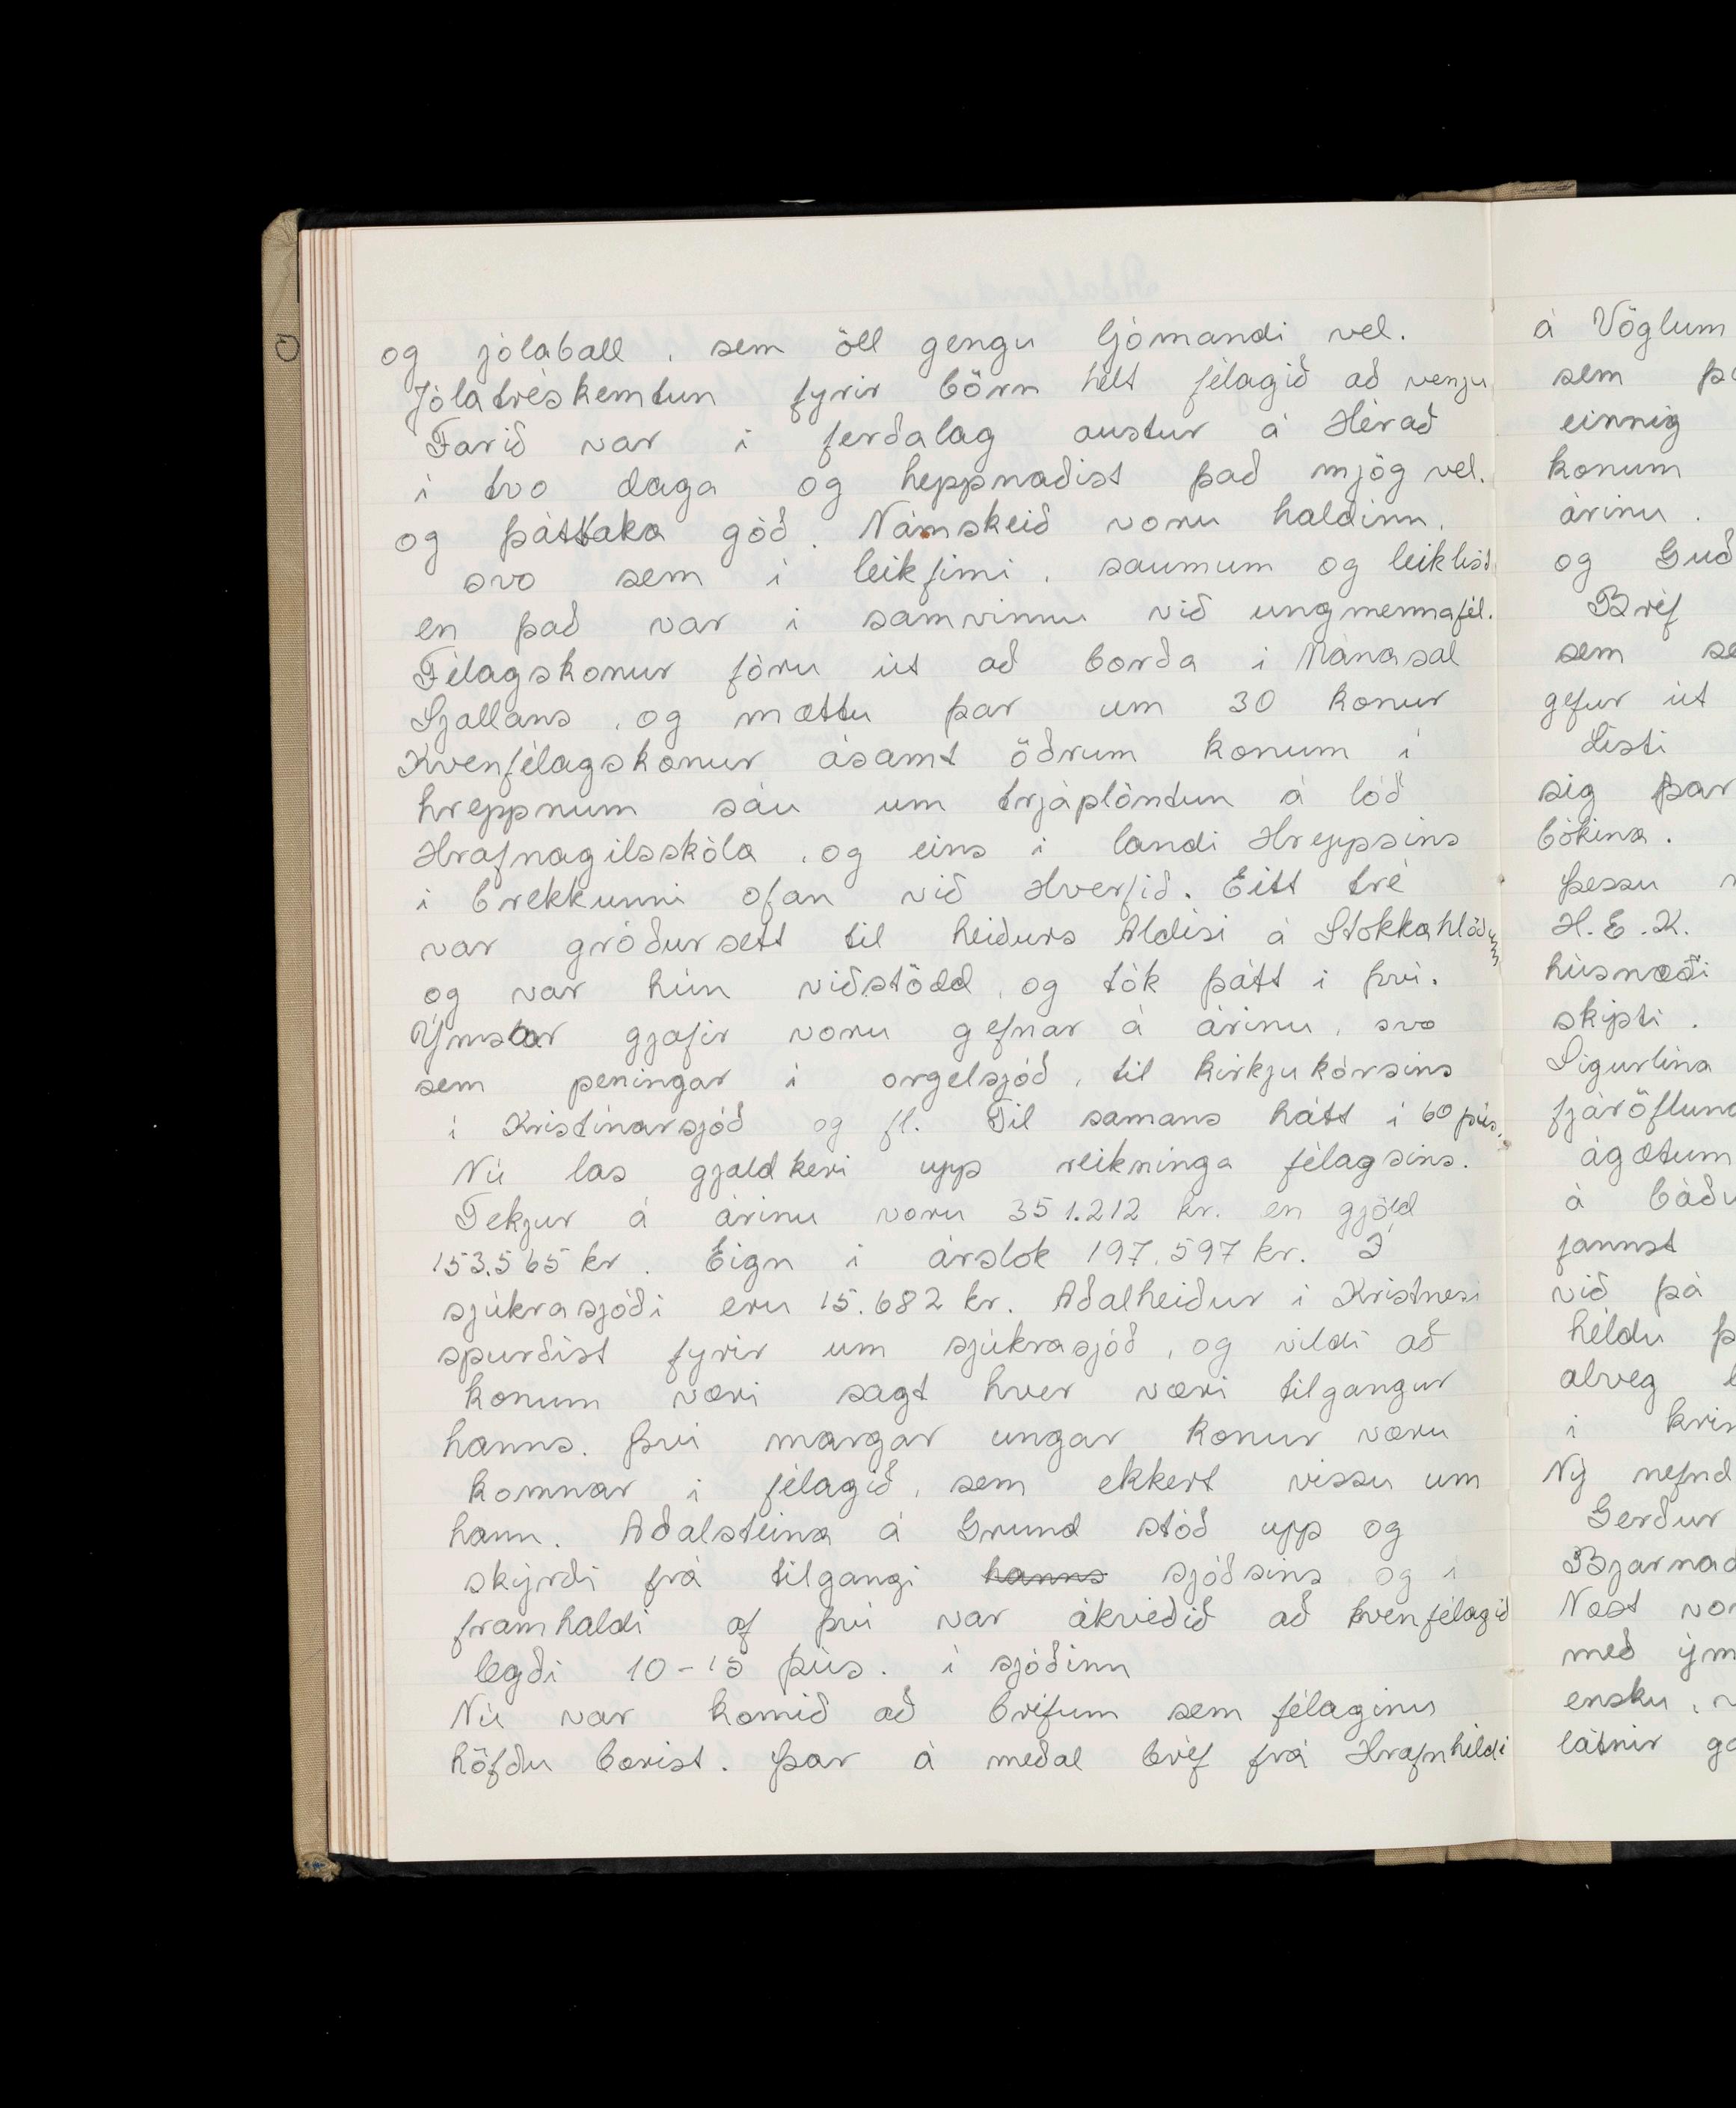 og jólaball, sem öll gengu ljómandi vel.
Jólatréskemtun fyrir börn hélt félagið að venju
Farið var í ferðalag austur á Hérað
í tvo daga og heppnaðist það mjög vel.
og þátttaka góð. Námskeið voru haldinn,
svo sem í leikfimi, saumum og leiklist
en það var í samvinnu við ungmennafél.
Félagskonur fóru út að borða í Mánasal
Sjallans, og mættu þar um 30 konur
Kvenfélagskonur ásamt öðrum konum í
hreppnum sáu um trjáplöntun á lóð
Hrafnagilsskóla, og eins í landi Hreppsins
í brekkunni ofan við Hverfið. Eitt tré
var gróðursett til heiðurs Aldísi á Stokkahlöðum
og var hún viðstödd, og tók þátt í því.
Ýmsar gjafir voru gefnar á árinu, svo
sem peningar í orgelsjóð, til kirkjukórsins
í Kristínarsjóð og fl. Til samans hátt í 60 þús.
Nú las gjaldkeri upp reikninga félagsins.
Tekjur á árinu voru 351.212 kr. en gjöld
153.565 kr. Eign í árslok 197.597 kr. Í
sjúkrasjóði eru 15.682 kr. Aðalheiður í Kristnesi
spurðist fyrir um sjúkrasjóð, og vildi að
konum væri sagt hver væri tilgangur
hanns. Því margar ungar konur væru
komnar í félagið, sem ekkert vissu um
hann. Aðalsteina á Grund stóð upp og
skýrði frá tilgangi hanns sjóðsins og í
framhaldi af því var ákveðið að kvenfélagið
legði 10-15 þús. í sjóðinn
Nú var komið að bréfum sem félaginu
höfðu borist. Þar á meðal bréf frá Hrafnhildi
á Vöglum
sem
einnig
konum
árinu.
og Guð
Bréf
sem
gefur út
listi
sig þar
bókina.
þessu
H.E.K.
húsnæði
skipti.
Sigurlína
fjáröfluna
ágætum
á báðu
fannst
við þá
héldu
alveg
í
Ný nefnd
Gerður
Bjarnad
Næst
með ým
ensku,
látnir